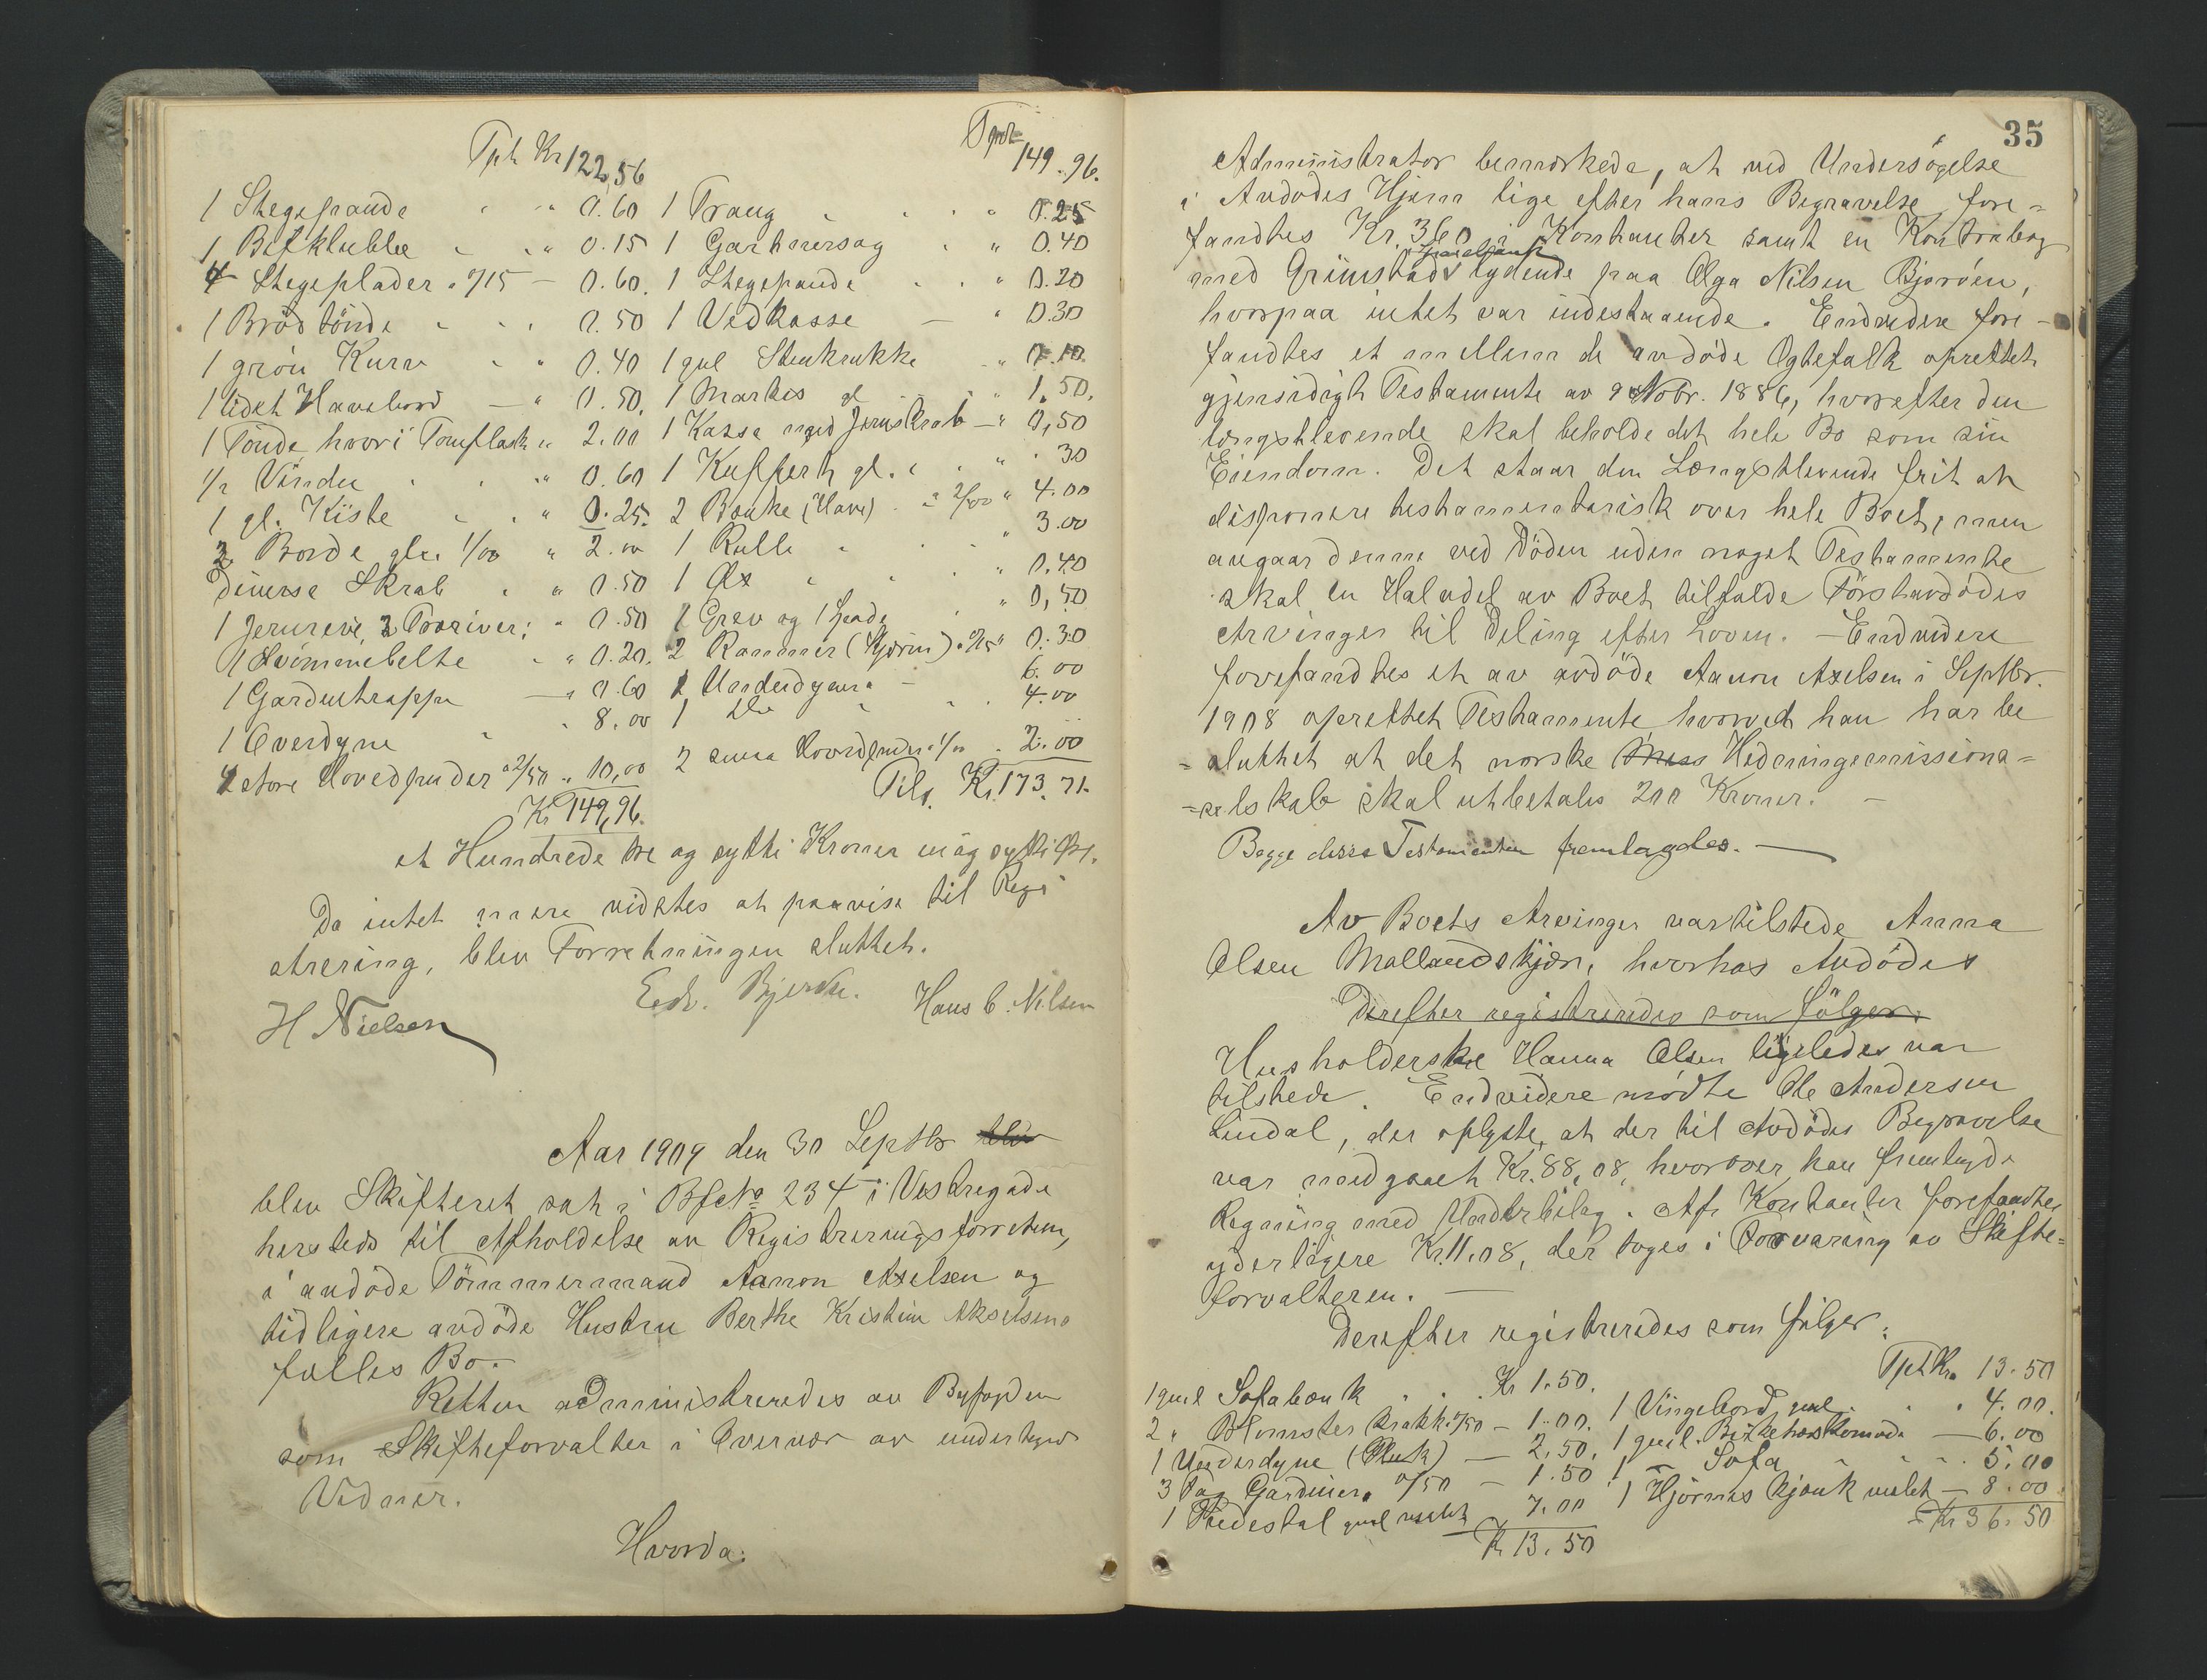 Tpt Kr 122,56
1 Stegepande " " 0.60
1 Bifklubbe " " 0.15
4 Stegeplader a 0/15 — 0.60.
1 Brödtönde " " 0.50
1 grön Kurv " " 0.40
1 lidet Havebord — " 0.50.
1 Tönde hvori Tomflask " 2.00
1/2 Vindu " " 0.60
1 gl. Kiste " " 0.25.
2 Borde gle. 1/00 " 2.00
Diverse Skrab " " 0.50
1 Jernrive, 2 Træriver; " 0.50
1 Svömmebelte " " 0.20.
1 Gardintrappe — " 0.60
1 Overdyne " " 8.00
4 store Hovedpuder a 2/50 " 10,00
Kr 149,96.
Tpt 149.96.
1 Traug " " 0.25
1 Gartnersag " " 0.40
1 Stegepande " " 0.20
1 Vedkasse — " 0.30
1 gul Stenkrukke " 0.10.
1 Markis gl " " 1.50.
1 Kasse med Jernskrab — " 0,50
1 Kuffert gl. " " . 30
2 Bænke (Have) . a 2/00 " 4.00
1 Rulle " " 3.00
1 Öx " " 0.40
1 Grev og 1 Spade " 0,50
2 Rammer (Hjörn) a 0/15 " 0.30
1 Underdyne " — 6.00
1 Do " " 4.00
2 smaa Hovedpuder a 1/00 . 2.00
Tils. Kr. 173.71.
et Hundrede tre og sytti Kroner en og sytti Öre.
Da intet mere vidstes at paavise til Regi
strering, blev Forretningen sluttet.
H Nielsen
Edv. Bjerke.
Hans C. Nilsen
Aar 1909 den 30 Septbr blev
blev Skifteret sat i Bfc No 234 i Vestregade
hersteds til Afholdelse av Registreringsforretn,
i avdöde Tömmermand Aanon Axelsen og
tidligere avdöde Hustru Berthe Kristine Akselsens
fælles Bo.
Retten administreredes av Byfogden
som Skifteforvalter i Overvær av undertegn
Vidner.
Hvorda:
35
Administrator bemærkede, at ved Undersögelse
i Avdödes Hjem lige efter hans Begravelse fore-
fandtes Kr. 360 i Kontanter samt en Kontrabog
med Grimstads Sparebank lydende paa Olga Nilsen Bjoröen,
hvorpaa intet var indestaaende. Endvidere fore-
fandtes et mellem de avdöde Ægtefolk oprettet
gjensidigt Testamente av 9 Novbr. 1886, hvorefter den
længstlevende skal beholde det hele Bo som sin
Eiendom. Det staar den Længstlevende frit at
disponere testamentarisk over hele Boet, men
avgaar denne ved Döden uden noget Testamente
skal en Halvdel av Boet tilfalde Förstavdödes
Arvinger til Deling efter Loven. — Endvidere
forefandtes et av avdöde Aanon Axelsen i Septbr.
1908 oprettet Testamente hvorved han har be
= sluttet at det norske Miss Hedningemissions=
= selskab skal utbetales 200 Kroner. —
Begge disse Testamenter fremlagdes. —
Av Boets Arvinger var tilstede Anna
Olsen Mallandskjær, hvorhos Avdödes
Derefter registreredes som fölger:
Husholderske Hanna Olsen ligeledes var
tilstede. Endvidere mödte Ole Andersen
Lindal, der oplyste, at der til Avdödes Begravelse
var medgaaet Kr. 88,08, hvorover han fremlagde
Regning med Underbilag. Af Kontanter forefandtes
yderligere Kr. 11.08, der toges i Forvaring av Skifte=
forvalteren. —
Derefter registreredes som fölger:
1 gul Sofabænk " " Kr 1.50.
2 " Blomsterkrakk. a 0/50 — 1.00.
1 Underdyne — 2.50.
3 Fag Gardiner a 0/50 — 1.50
1 Piedestal gul malet 7.00
Kr 13.50
Tpt Kr. 13.50
1 Vingebord, gul . " " 4.00.
1 gul. Birketræskomode — 6.00
1 — Sofa " " 5.00
1 Hjörneskjænk malet — 8.00
Kr 36.50